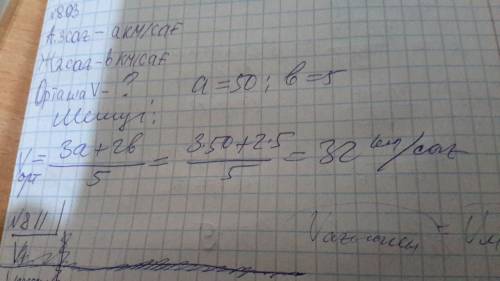 №803
А.3сағ – а км/сағ
Ж2сағ – в км/сағ
Орташа V – ? а = 50 ; в = 5
Шешуі:
Vорт = 3а+2в/5 = 3·50+2·5/5 = 32 км/сағ
№811